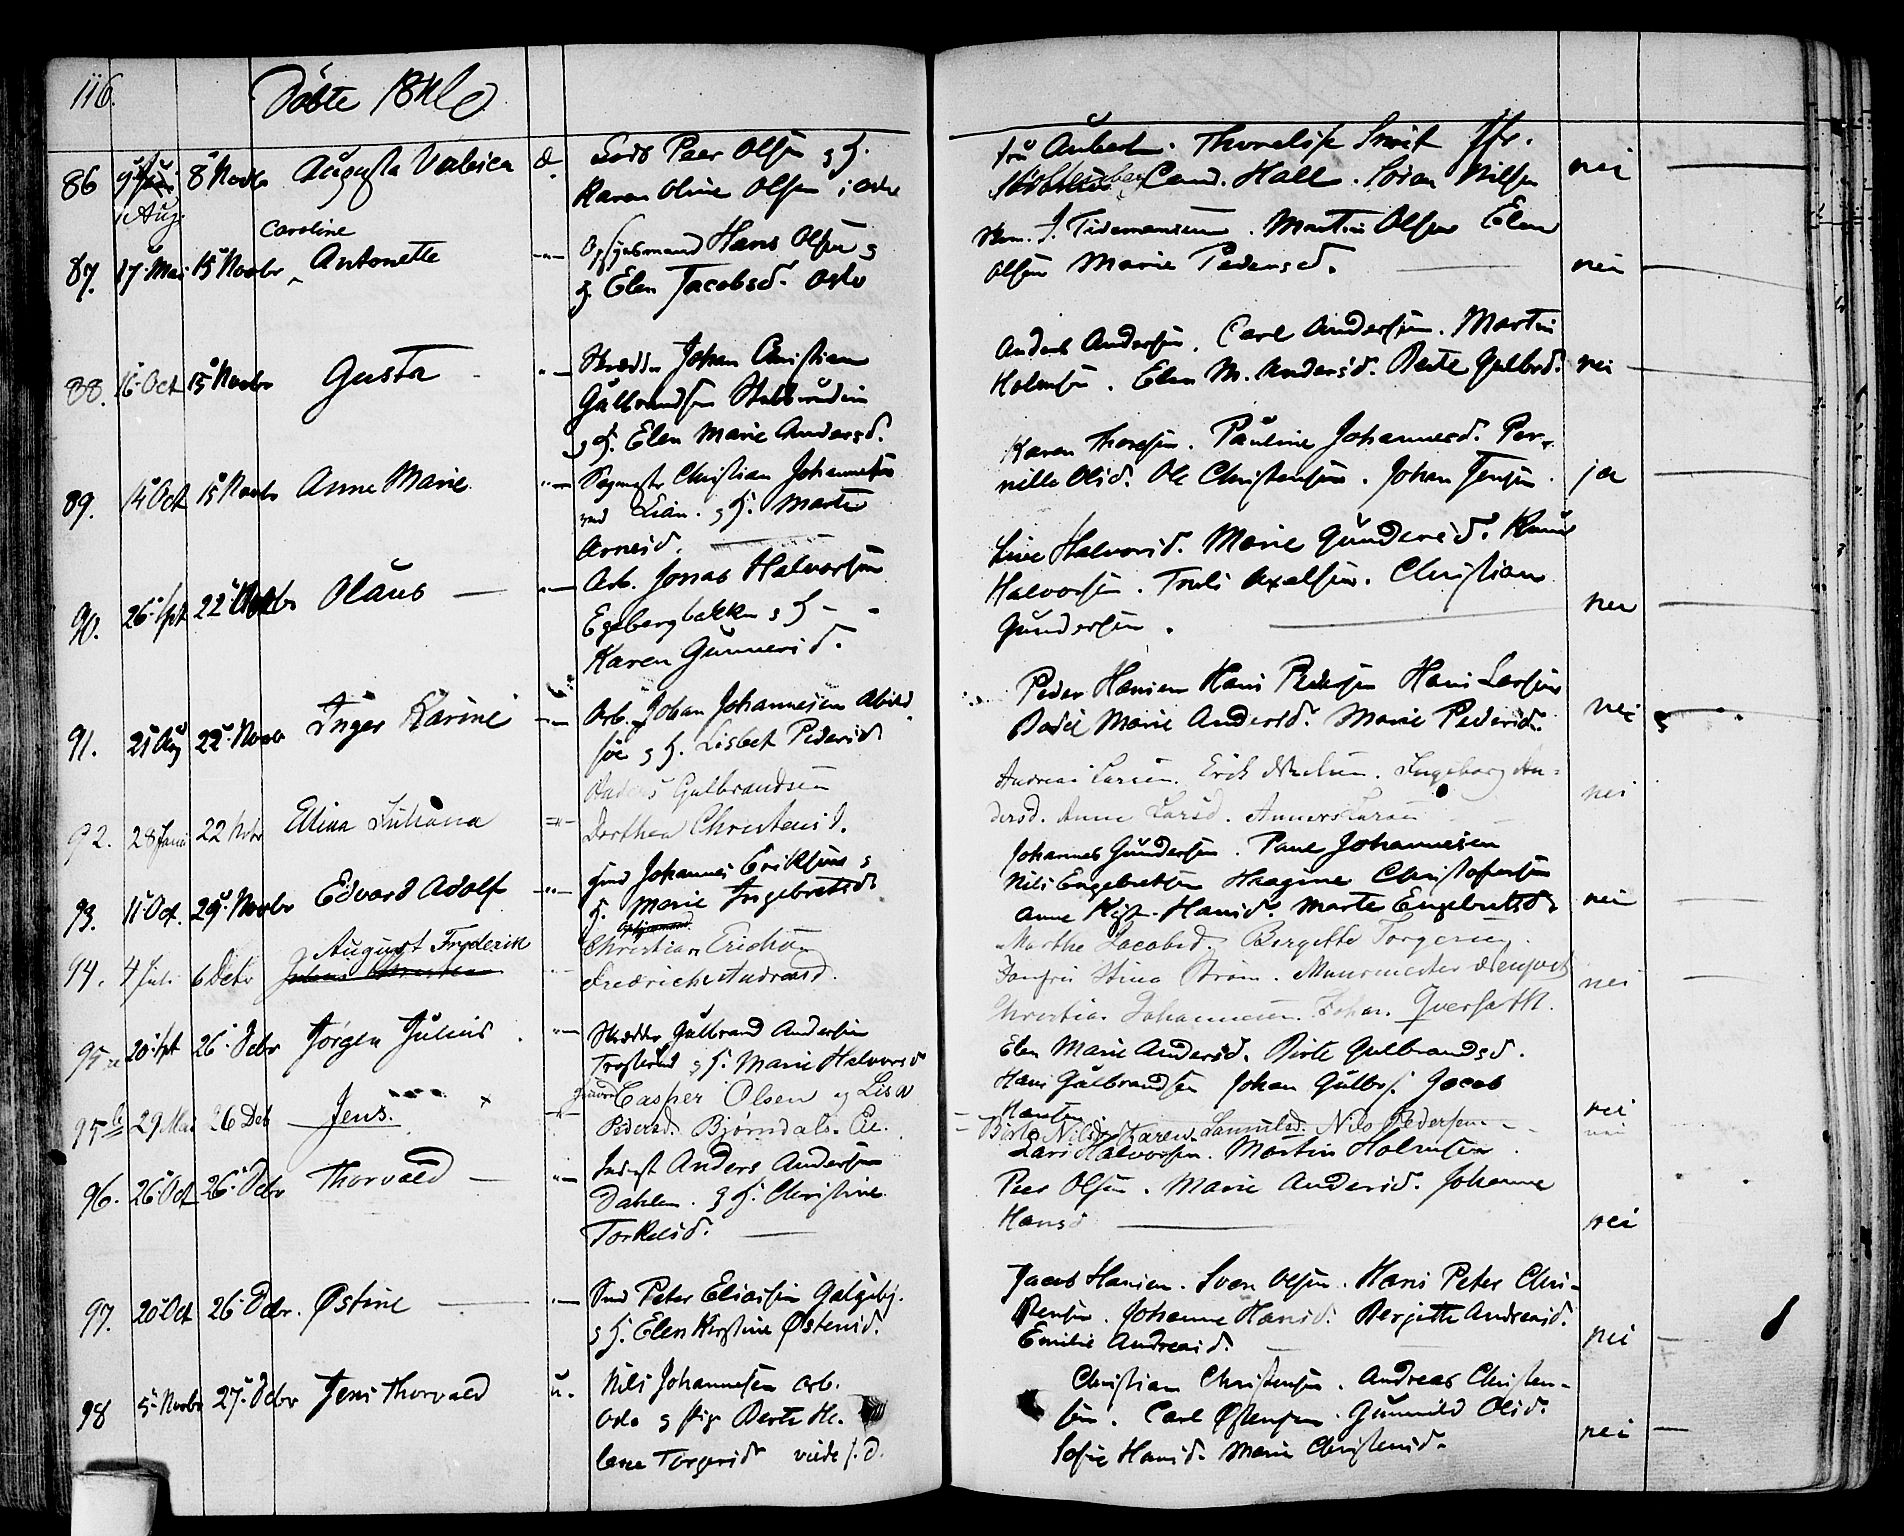 116.
Döbte 1846
86 8 Novbr Augusta d. Peer Olsen g H.
11 Aug. Karen Oline Olsen i Oslo
Caroline
87. 17 Mai 15 Novbr Antonette -"- Opsynsmand Hans Olsen g
H. Elen Jacobsd. Oslo
88. 16 Oct 15 Novbr Gusta "- Skrædder Johan Christian
Gulbrandsen
g H. Elen Marie Andersd.
89. 14 Oct 15 Novbr Anne Marie "- Christian Johannesen
ved Lian. g H. Marte
Arnesd.
90. 26 Spt 22 Novbr Olaus — "- Arb. Jonas Halvorsen
Egebergbakken g H -
Karen Gunnersd.
91. 21 Aug 22 Novbr Inger Karine -"- Arb. Johan Johannesen
søe g H. Lisbet Pedersd
Anders Gulbrandsen
92. 28 Juni 22 Nvbr Elina Juliana -"- Dorthea Christensd.
93. 11 Oct. 29 Novbr Edvard Adolf -"- Smd Johannes Eriksen g
H. Marie Ingebretsd
94. 4 Juli 6 Decbr August Frederik Christian Erichsen
Fredrikke Andreasd.
95 a 20 Spt 26 Decbr Jørgen Julius. "- Skrædder Gulbrand Andersen
g H. Marie Halvorsd
95 b 29 Mai 26 Deb Jens. -"- Casper Olsen og Lisa
Pedersd. Bjørndals. Eie.
96. 26 Oct 26 Decbr Thorvald — "- Anders Andersen
Dahlen. g H. Christine
Torkelsd. —
97. 20 Oct 26 Decbr. Østine — "- Smd Peter Eliasen
g H. Elen Kirstine Østensd.
98 5 Novbr 27 Decbr Jens Thorvald u. Nils Johannesen Arb.
Oslo g Pige Berte He-
lene Torgersd
Fru Aubert. Smit
Cand. Hall. Søren Nilsen nei —
Tidemansen. Martin Olsen Elen
Olsen Marie Pedersd. — nei —
Anders Andersen. Carl Andersen. Martin
Holmsen. Elen M. Andersd. Berte Gulbrd. nei —
Karen Thoresen. Pauline Johannesd. Per-
nille Olsd. Ole Christensen. Johan Jensen. ja —
Line Halvorsd. Marie Gundersd. Knud
Halvorsen. Truls Axelsen. Christian
Gundersen. — nei —
Peder Hansen Hans Pedersen Hans Larsen
Bodil Marie Andersd. Marie Pedersd. nei —
Andreas Larsen. Erik Nielsen. Ingeborg An-
dersd. Anne Larsd. Anners Larsen nei
Johannes Gundersen. Paul Johannesen
Nils Engebretsen Christofersen
Anne Hansd. Marte Engebretsd. nei —
Marthe Jacobsd. Bergette Torgersen.
Jomfru Stina Strøm. Muurmester
Christian Johannesen. Johan nei —
Elen Marie Andersd. Berte Gulbrandsd.
Hans Gulbrandsen Johan Gulbrs. Jacob
Hansen nei
Nilsd. Karen Samuelsd. Nils Pedersen nei
Lars Halvorsen. Martin Holmsen.
Peer Olsen. Marie Andersd. Johanne
Hansd — nei
Jacob Hansen. Sven Olsen. Hans Peter Chri-
stensen. Johanne Hansd. Bergitte Andreasd.
Emilie Andreasd. nei —
Christian Christensen. Andreas Christen-
sen. Carl Østensen. Gunnild Olsd.
Sofie Hansd. Marie Christensd. nei —